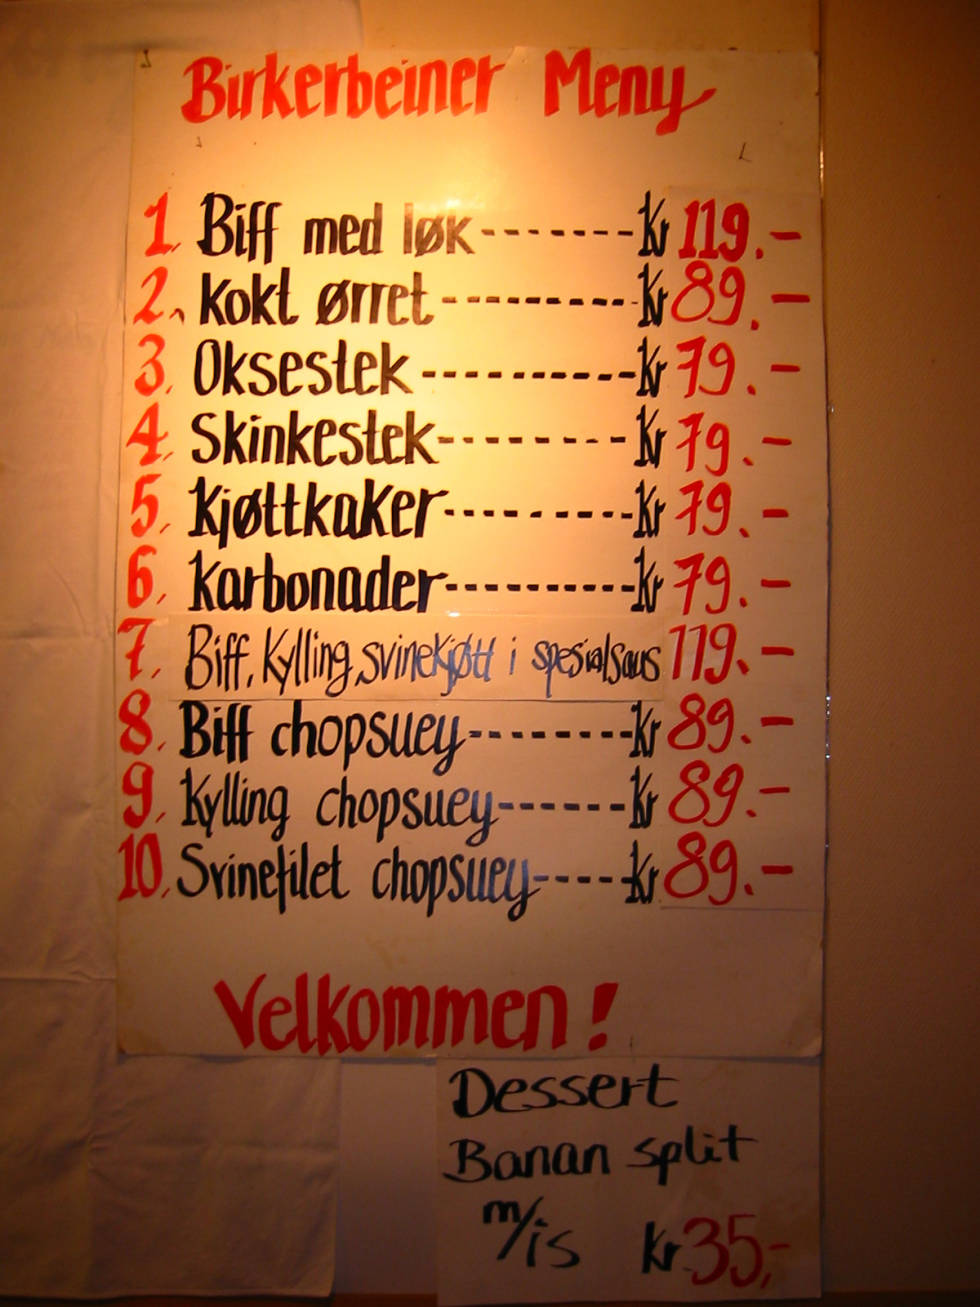 Birkerbeiner Meny
1. Biff med løk-------Kr 119.-
2. Kokt ørret---------Kr 89.-
3. Oksestek----------Kr 79.-
4. Skinkestek--------Kr 79.-
5. Kjøttkaker---------Kr 79.-
6. Karbonader---------Kr 79.-
7. Biff, Kylling, svinekjøtt i spesialsaus 119.-
8. Biff chopsuey--------Kr 89.-
9. Kylling chopsuey------Kr 89.-
10. Svinefilet chopsuey-----Kr 89.-
Velkommen!
Dessert
Banan split
m/is Kr 35,-